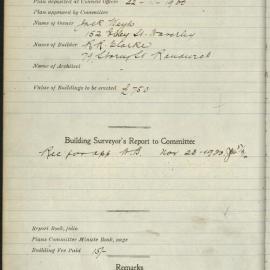 Plan deposited at Council Office 22-
Plan approved by Committee
Name of Owner Jack
152 St. Waverley
Name of Builder R. R. Clarke
79 Storey St Randwick
Name of Architect
Value of Buildings to be erected £750
Building Surveyor's Report to Committee
Rec for app W.B. Nov 23-
Report Book, folio
Plans Committee Minute Book, page
Building Fee Paid 15/-
Remarks